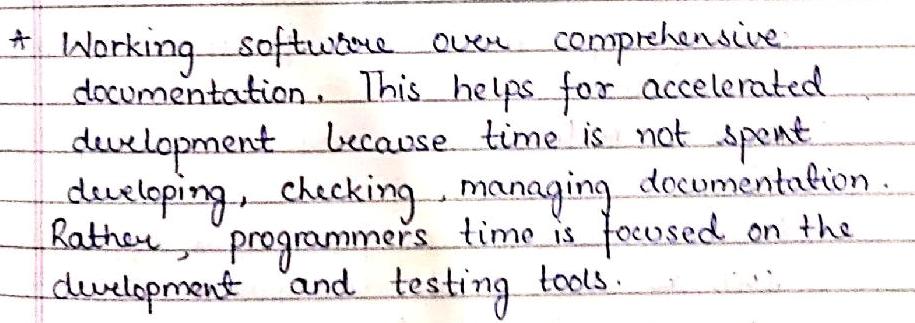 * Working software over comprehensive
documentation. This helps for accelerated
development because time is not spent
developing, checking, managing documentation.
Rather, programmers time is focused on the
development and testing tools.